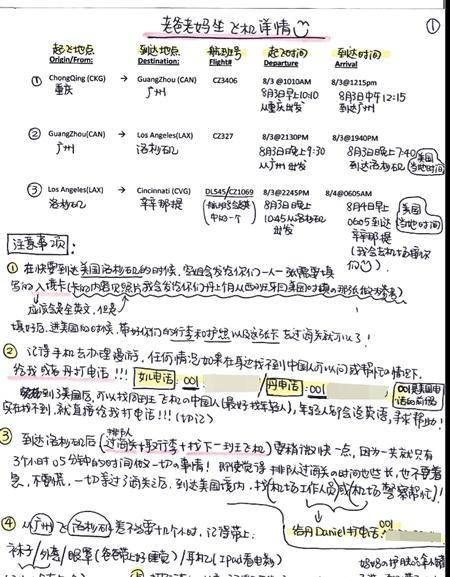 老爸老妈坐飞机详情 ①
起飞地点 到达地点 航班号 起飞时间 到达时间
Origin/From: Destination: Flight# Departure Arrival
① ChongQing (CKG) → GuangZhou (CAN) CZ3406 8/3 @1010AM 8/3@1215pm
重庆 广州 8月3日早上10:10 8月3日中午12:15
从重庆出发 到达广州
② GuangZhou(CAN) → Los Angeles(LAX) CZ327 8/3@2130PM 8/3@1940PM
广州 洛杉矶 8月3日晚上9:30 8月3日晚上7:40
从广州出发 到达洛杉矶
美国当地时间
③ Los Angeles(LAX) → Cincinnati (CVG) DL545/CZ1069 8/3@2245PM 8/4@0605AM
洛杉矶 辛辛那提 8月3日晚上 8月4日早上
中的一个 10:45从洛杉矶 0605到达
出发 辛辛那提
美国当地时间
注意事项:
① 在快要到达美国洛杉矶的时候,空姐会发给你们一人一张需要填
写的入境卡
应该是全英文,但是
填好后,进美国的时候,带好你们的行李和护照以及这张卡去过海关就可以了!
② 记得手机去办理漫游,任何情况如果在身边找不到中国人可以问或帮忙的情况下,
给我或者丹打电话!!! 如电话:001 丹电话:001 001是美国电话的前缀
到了美国后,可以找同班飞机的中国人(最好找年轻人),年轻人都会说英语,寻求帮助!
实在找不到,就直接给我打电话!!!(切记)
③ 到达洛杉矶后(过海关+取行李+找下一班飞机)要稍微快一点,因为一共就只有
排队
3个小时05分钟的时间做一切的事情!即使觉得排队过海关的时间也些长,也不要着
急,不要慌,一切等过了海关之后,到达美国境内,找(机场工作人员或机场警察帮忙)!
给丹Daniel打电话:001
④ 从广州飞洛杉矶差不多要十几个小时,记得带上:
袜子/外套/眼罩(爸带上好睡觉)/耳机(Ipad看电影)